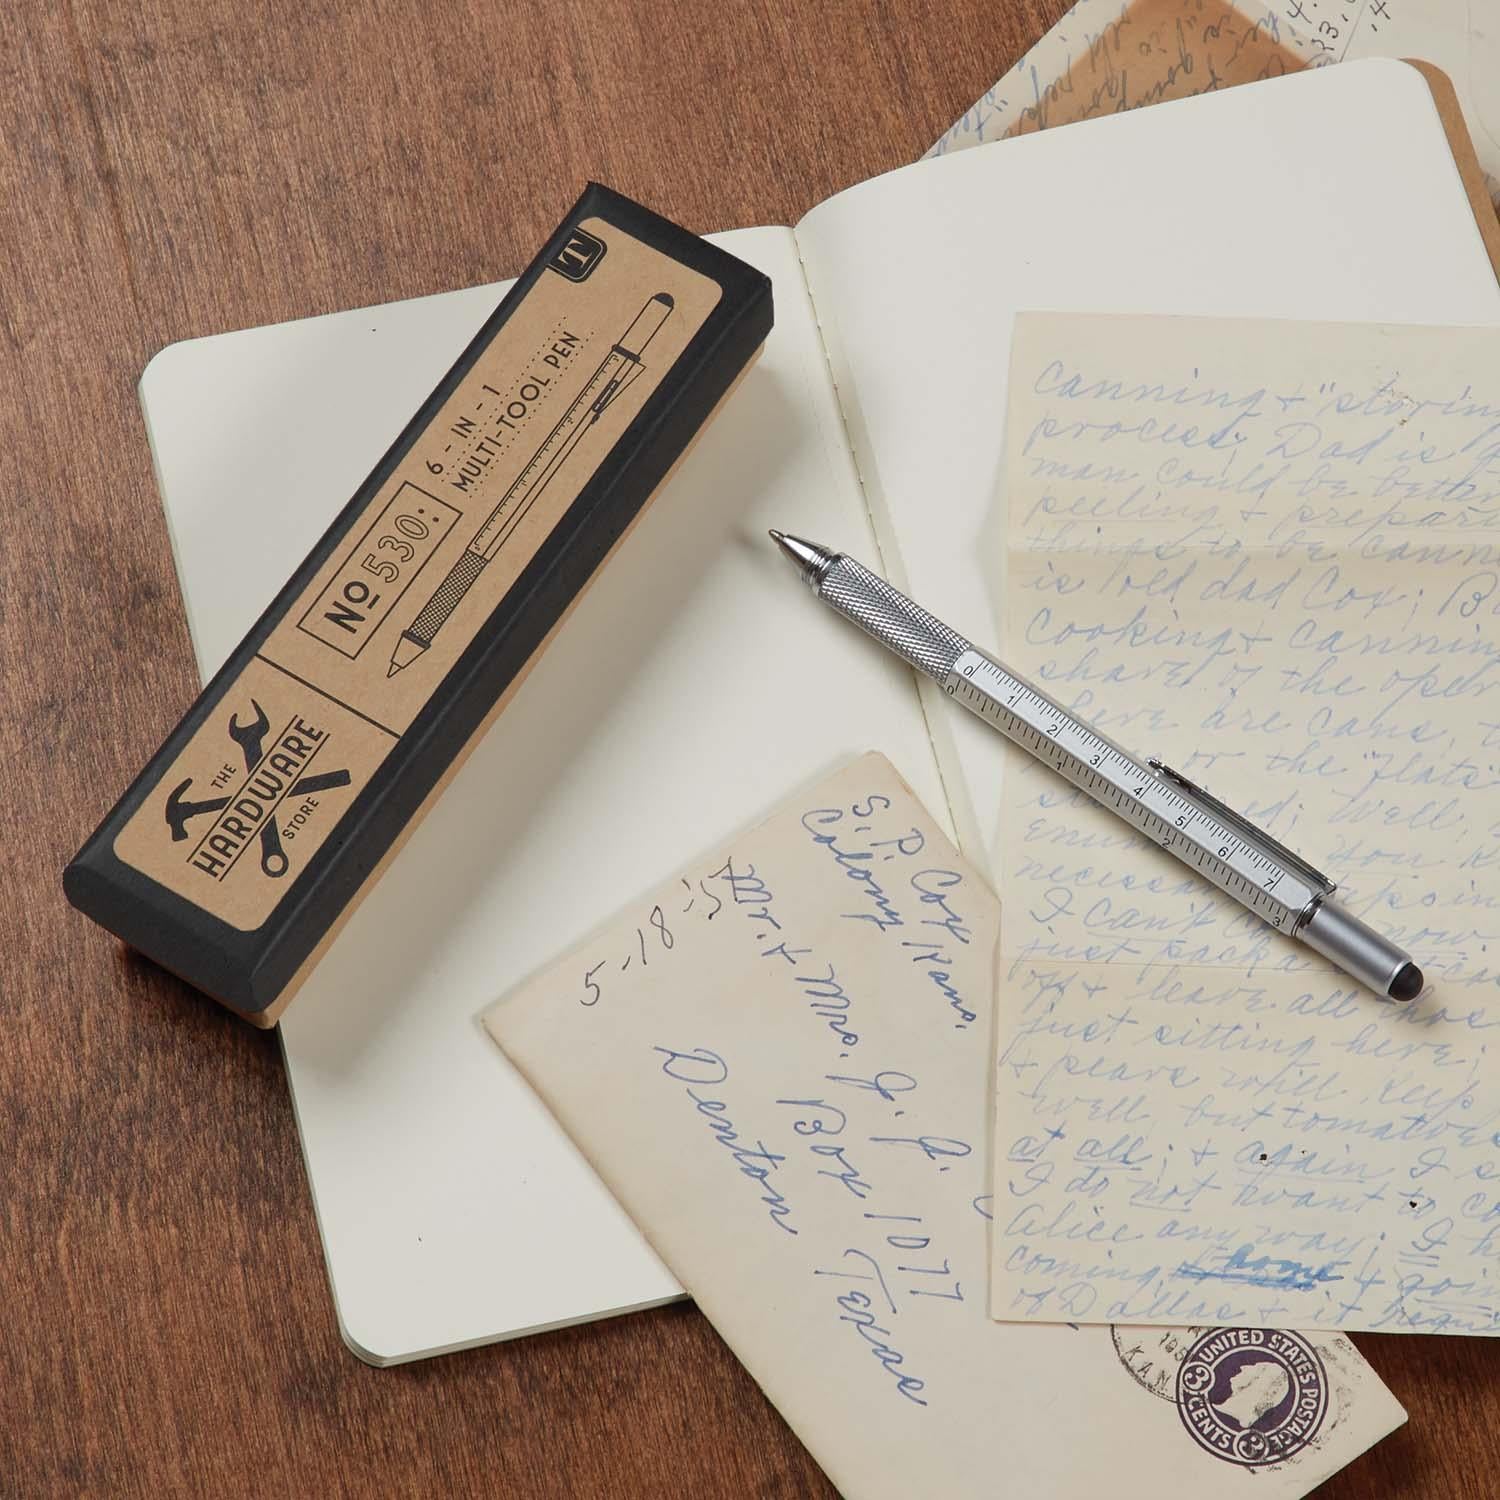 6 - IN - 1
MULTI-TOOL PEN
No 530:
THE
HARDWARE
STORE
0 1 2 3 4 5 6 7
0 1 2 3
canning & "storing
process; Dad is
man could be better
peeling & prepar
things to be cann
is old dad Cox; B
cooking & cannin
share of the oper
are cans,
or the "flats"
Well,
You
necess
I can't now.
just pack a
off & leave all those
just sitting here;
& pears will keep
well, but tomatoes
at all; & again I s
I do not want to co
Alice any way; I h
coming home & goin
of Dallas & it requi
S. P. Cox
Colony Kans.
5-18-5
Mr. & Mrs. J. A.
Box 1077
Denton Texas
KAN
UNITED STATES POSTAGE
3 CENTS 3